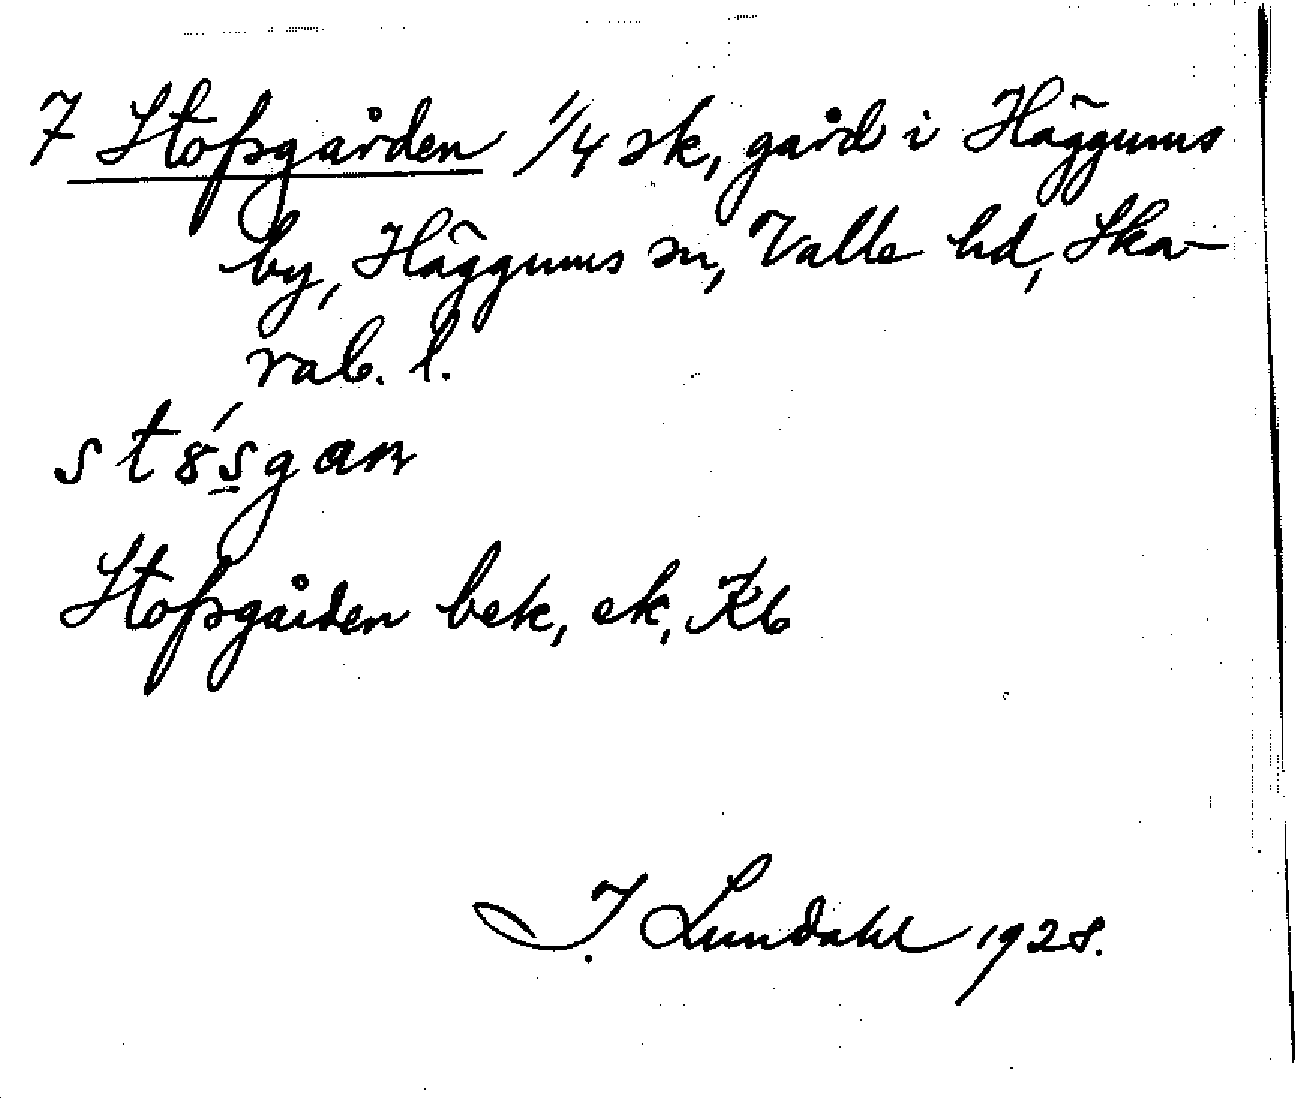 7 Stofsgården 1/4 sk, gård i Häggums
by, Häggums sn, Valle hd, Ska-
rab. l.
Stofsgården bek, ek, Kb
I. Lundahl 1928.